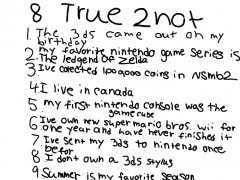 8 True 2not
1. The 3ds came out oh my
birthday
2. my favorite nintendo game series is
The ledgend OF Zelda
3. I've colected 1,000,000 coins in NSmb2
4 I live in canada
5 my first nintendo console was the
gamecube
6 I've own new super mario bros. wii for
one year and have never finished it
7 I've sent my 3ds to nintendo once
befor
8 I don't own a 3ds stylus
9 Summer is my favorite season